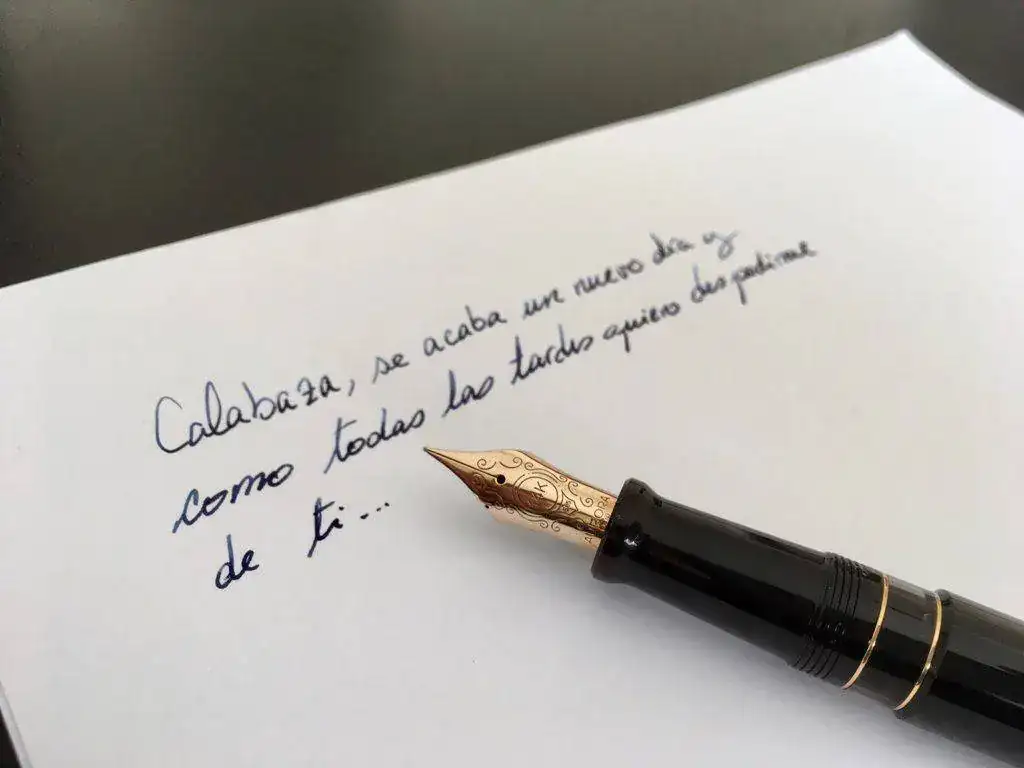 Calabaza, se acaba un nuevo día y
como todas las tardes quiero despedirme
de ti...
14K